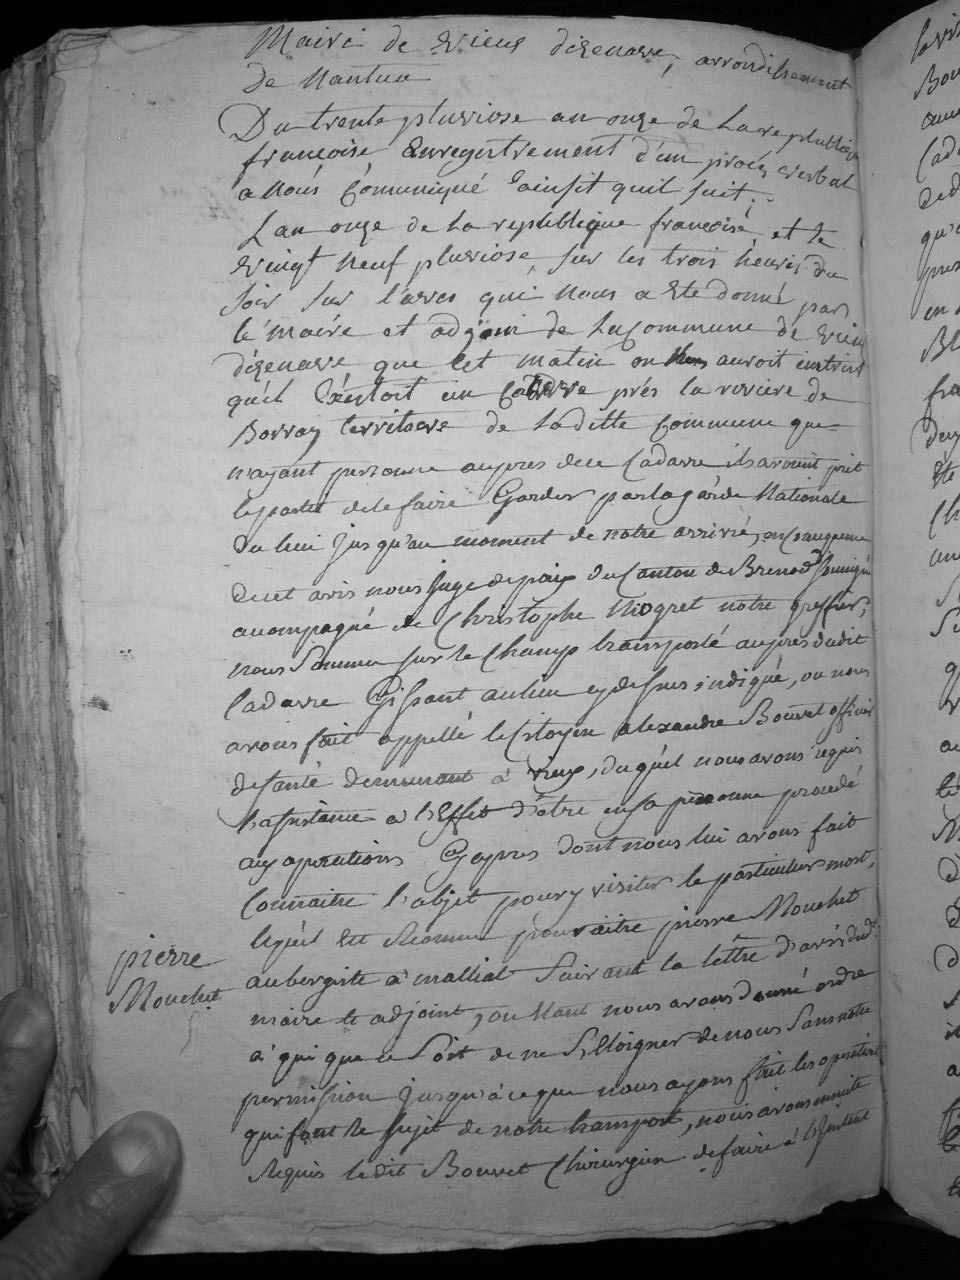 Mairi de Vieux dizenave, arrondissement
De Nantua
Du trente pluviose an onze de La republique
francoise Enregistrement d'un procés verbal
a Nous Communiqué Cainsit quil suit..
L'an onze de La republique francoise, et le
Vingt Neuf pluviose, sur les trois heures Du
soir sur l'avis qui Nous a Ete donné par
le maére et adjoin de La Commune de Vieu
dizenave que Cet matin on auroit
quil Existoit un Cadavre prés la riviere de
Borray territoire de Ladite Commune que
n'ayant personne aupres dece Cadavre ils avoient prit
le partit dele faire Garder par la garde Nationale
du lieu jusqu'au moment de notre arrivé, en Consequence
de cet avis nous juge de paix du Canton de Brenod soussigné
accompagné de Christophe Niogret notre greffier,
nous sommes sur le Champ transporté aupres dudit
Cadavre Gissant au lieu cy dessus indiqué, ou nous
avons fait appellé le Citoyen alexandre Bouvet officier
desanté demeurant à Vieux, duquél nous avons requis
l'assistance a l'Effet d'être en sa personne procedé
aux operations Cy apres dont nous lui avons fait
Connaitre l'objet pour y visiter le particulier mort,
lequél est reconnu pour être pierre Mouchet
aubergiste a malliat Suivant la lettre d'avis dudt
maire et adjoint, avons donné ordre
a qui que ce soit de ne s'Elloigner de nous sans notre
permission jusqu'a ce que nous ayons fait les operations
qui font le sujet de notre transport, nous avons ensuite
Requis le dit Bouvet Chirurgien de faire à l'instant
pierre
Mouchet